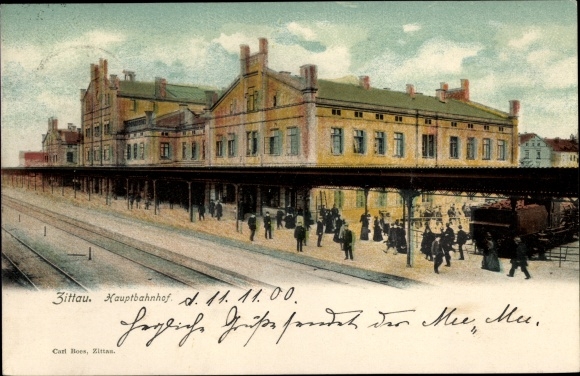 Zittau. Hauptbahnhof. d. 11. 11. 00
Herzliche Grüße sendet der
Carl Boes, Zittau.